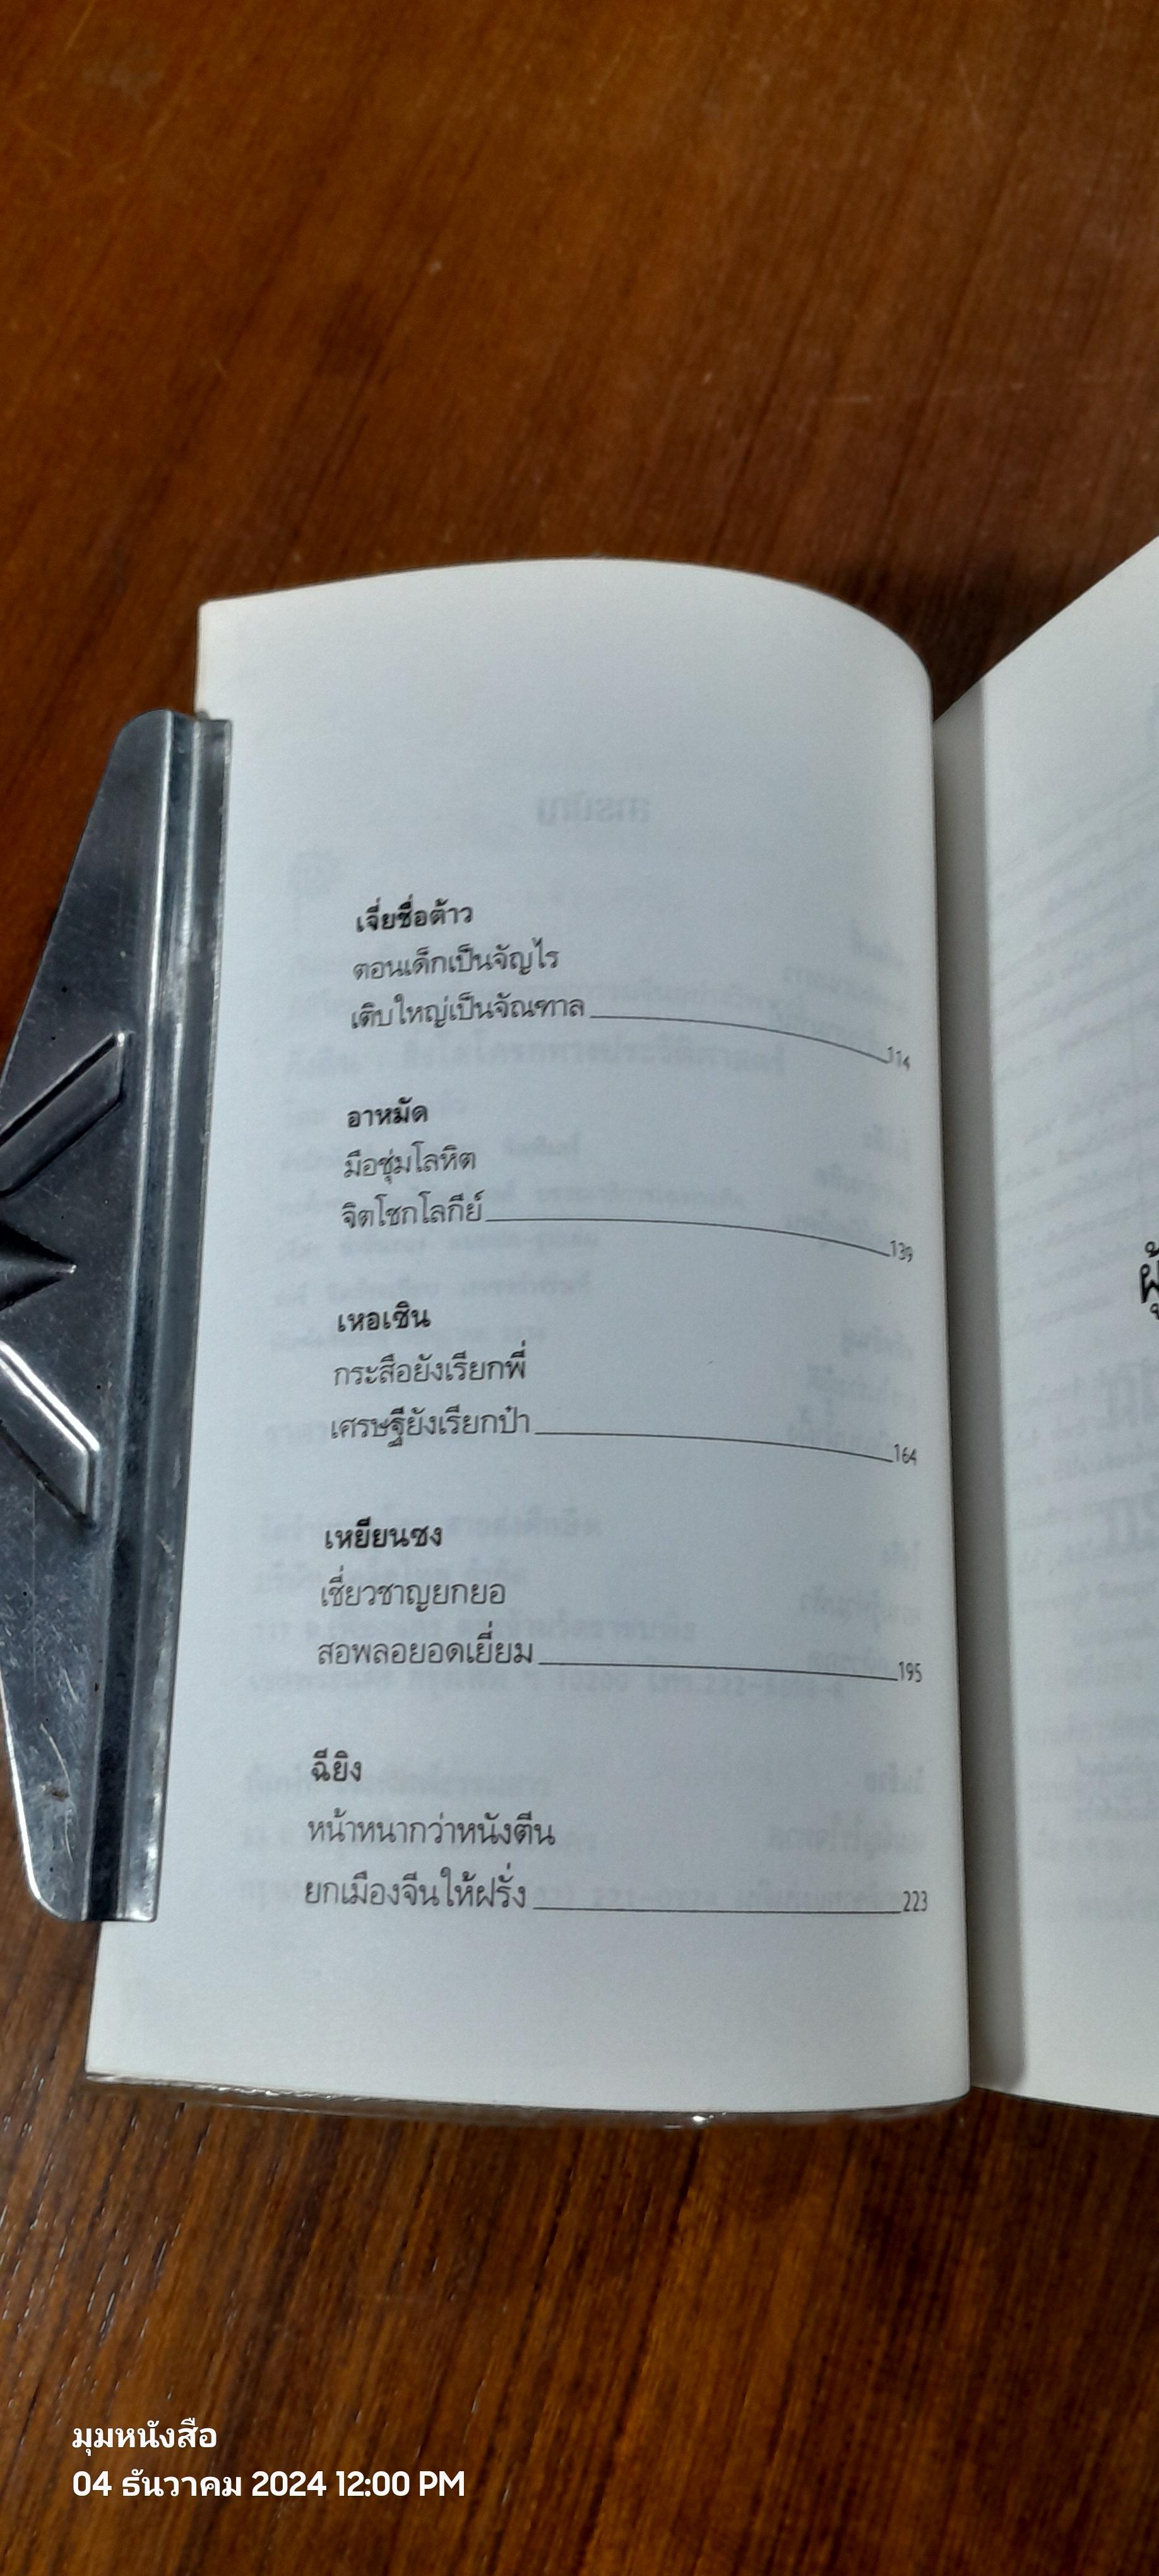 เจี่ยซื่อต้าว
ตอนเด็กเป็นจัญไร
เติบใหญ่เป็นจัณฑาล 114
อาหมัด
มือชุ่มโลหิต
จิตโชกโลกีย์ 139
เหอเซิน
กระสือยังเรียกพี่
เศรษฐียังเรียกป๋า 164
เหยียนซง
เชี่ยวชาญยกยอ
สอพลอยอดเยี่ยม 195
ฉียิง
หน้าหนากว่าหนังตีน
ยกเมืองจีนให้ฝรั่ง 223
มุมหนังสือ
04 ธันวาคม 2024 12:00 PM